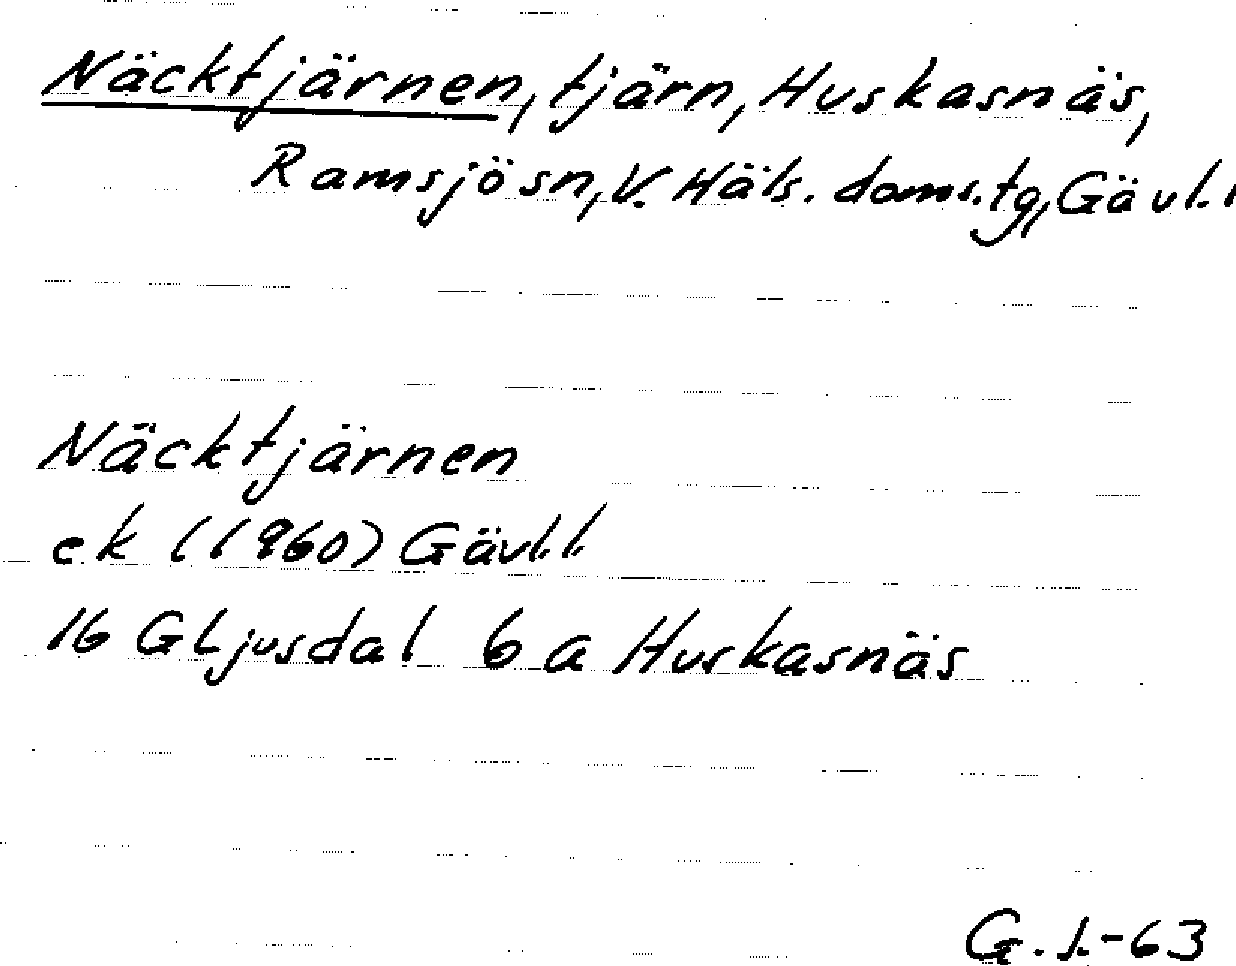 Näcktjärnen, tjärn, Huskasnäs,
Ramsjö sn, V. Häls. doms.tg, Gävl. l
Näcktjärnen
ek (1960) Gävl. l.
16 G Ljusdal 6 a Huskasnäs
G. L-63